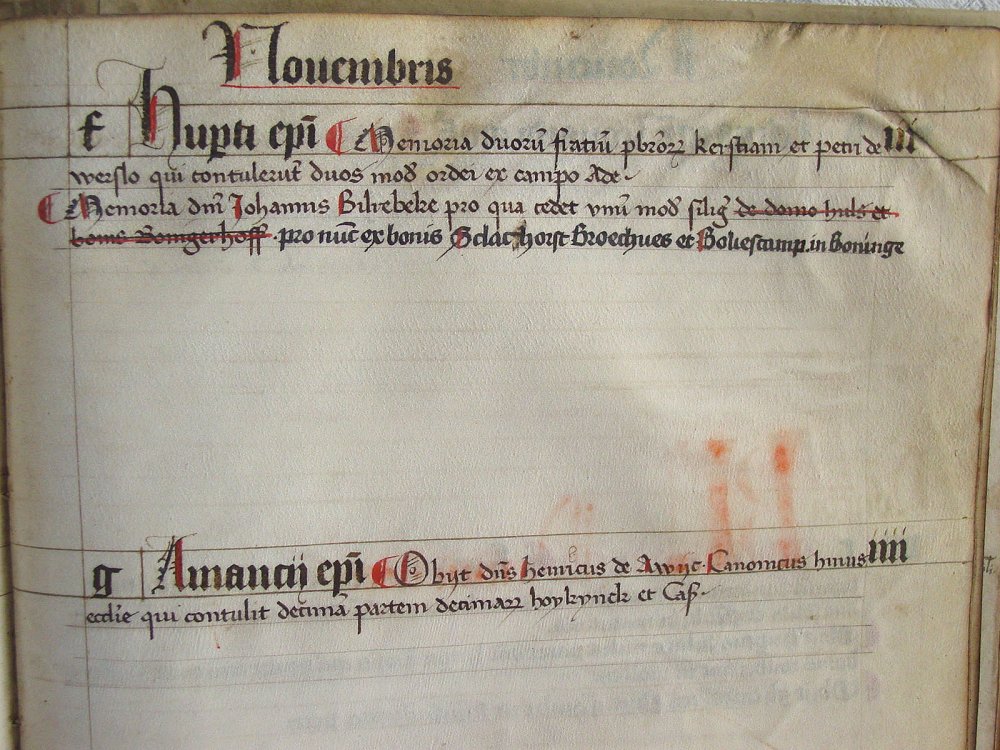 Nouembris
f Hupti epī Memoria duorū fratrū pbrōrꝝ Kerstiani et petri de iii
werslo qui contulerūt duos mod̄ ordei ex campo Ade
Memoria dn̄i Johannis Bilrebeke pro qua cedet vnū mod̄ siliḡ de domo huls et
bome Bomgerhoff pro nūc ex bonis Sclachorst Broechues et Boliescamp in Boninge
g Amancij epī Obijt dn̄s henricus de Awijc Canonicus huius iiii
eccl̄ie qui contulit decimā partem decimaꝝ hoykynck et Cas̄